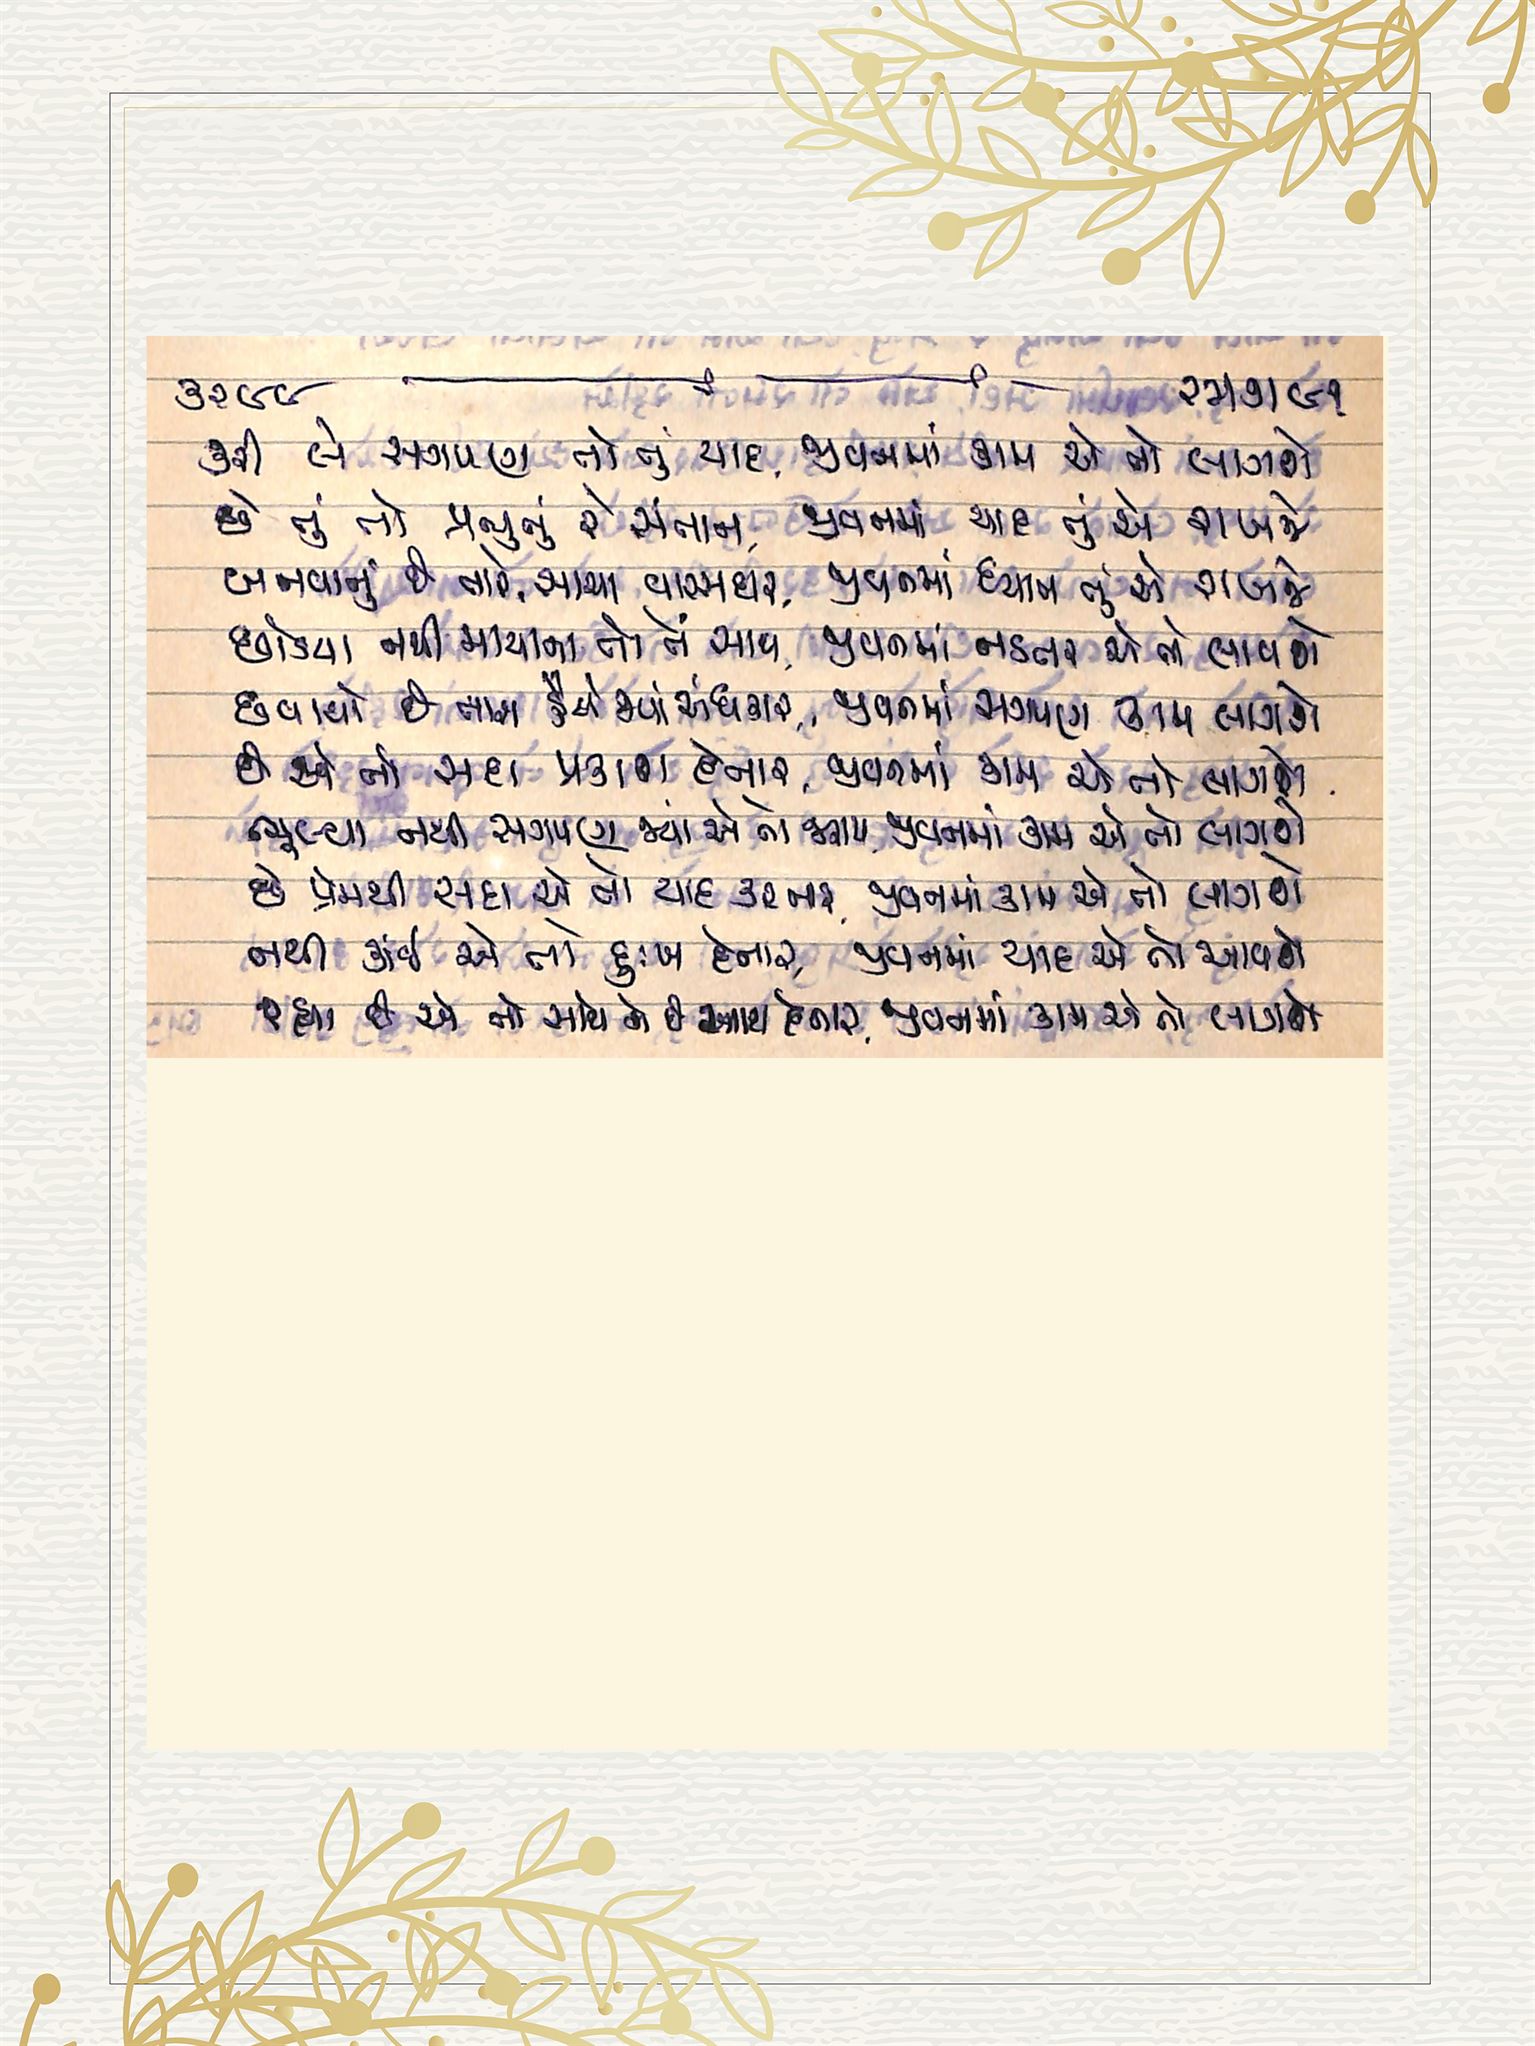 ૩૨૯૯ ૨૫/૭/૯૧
કરી લે સગપણ તો તું યાદ, જીવનમાં કામ એ તો લાગશે
છે તું તો પ્રભુનું રે સંતાન, જીવનમાં યાદ તું એ રાખજે
બનવાનું છે તારે, સાચા વારસદાર, જીવનમાં ધ્યાન તું એ રાખજે
છોડયા નથી માયાના તો તેં સાથ, જીવનમાં નડતર એ તો લાવશે
છવાયો છે તારા હૈયે જ્યાં અંધકાર, જીવનમાં સગપણ કામ લાગશે
છે એ તો સદા પ્રકાશ દેનાર, જીવનમાં કામ એ તો લાગશે.
ભૂલ્યા નથી સગપણ જ્યાં એ તો જરાય, જીવનમાં કામ એ તો લાગશે
છે પ્રેમથી સદા એ તો યાદ કરનાર, જીવનમાં કામ એ તો લાગશે
નથી કાંઈ એ તો દુઃખ દેનાર, જીવનમાં યાદ એ તો આવશે
રહ્યા છે એ તો સાથે ને છે સાથ દેનાર, જીવનમાં કામ એ તો લાગશે